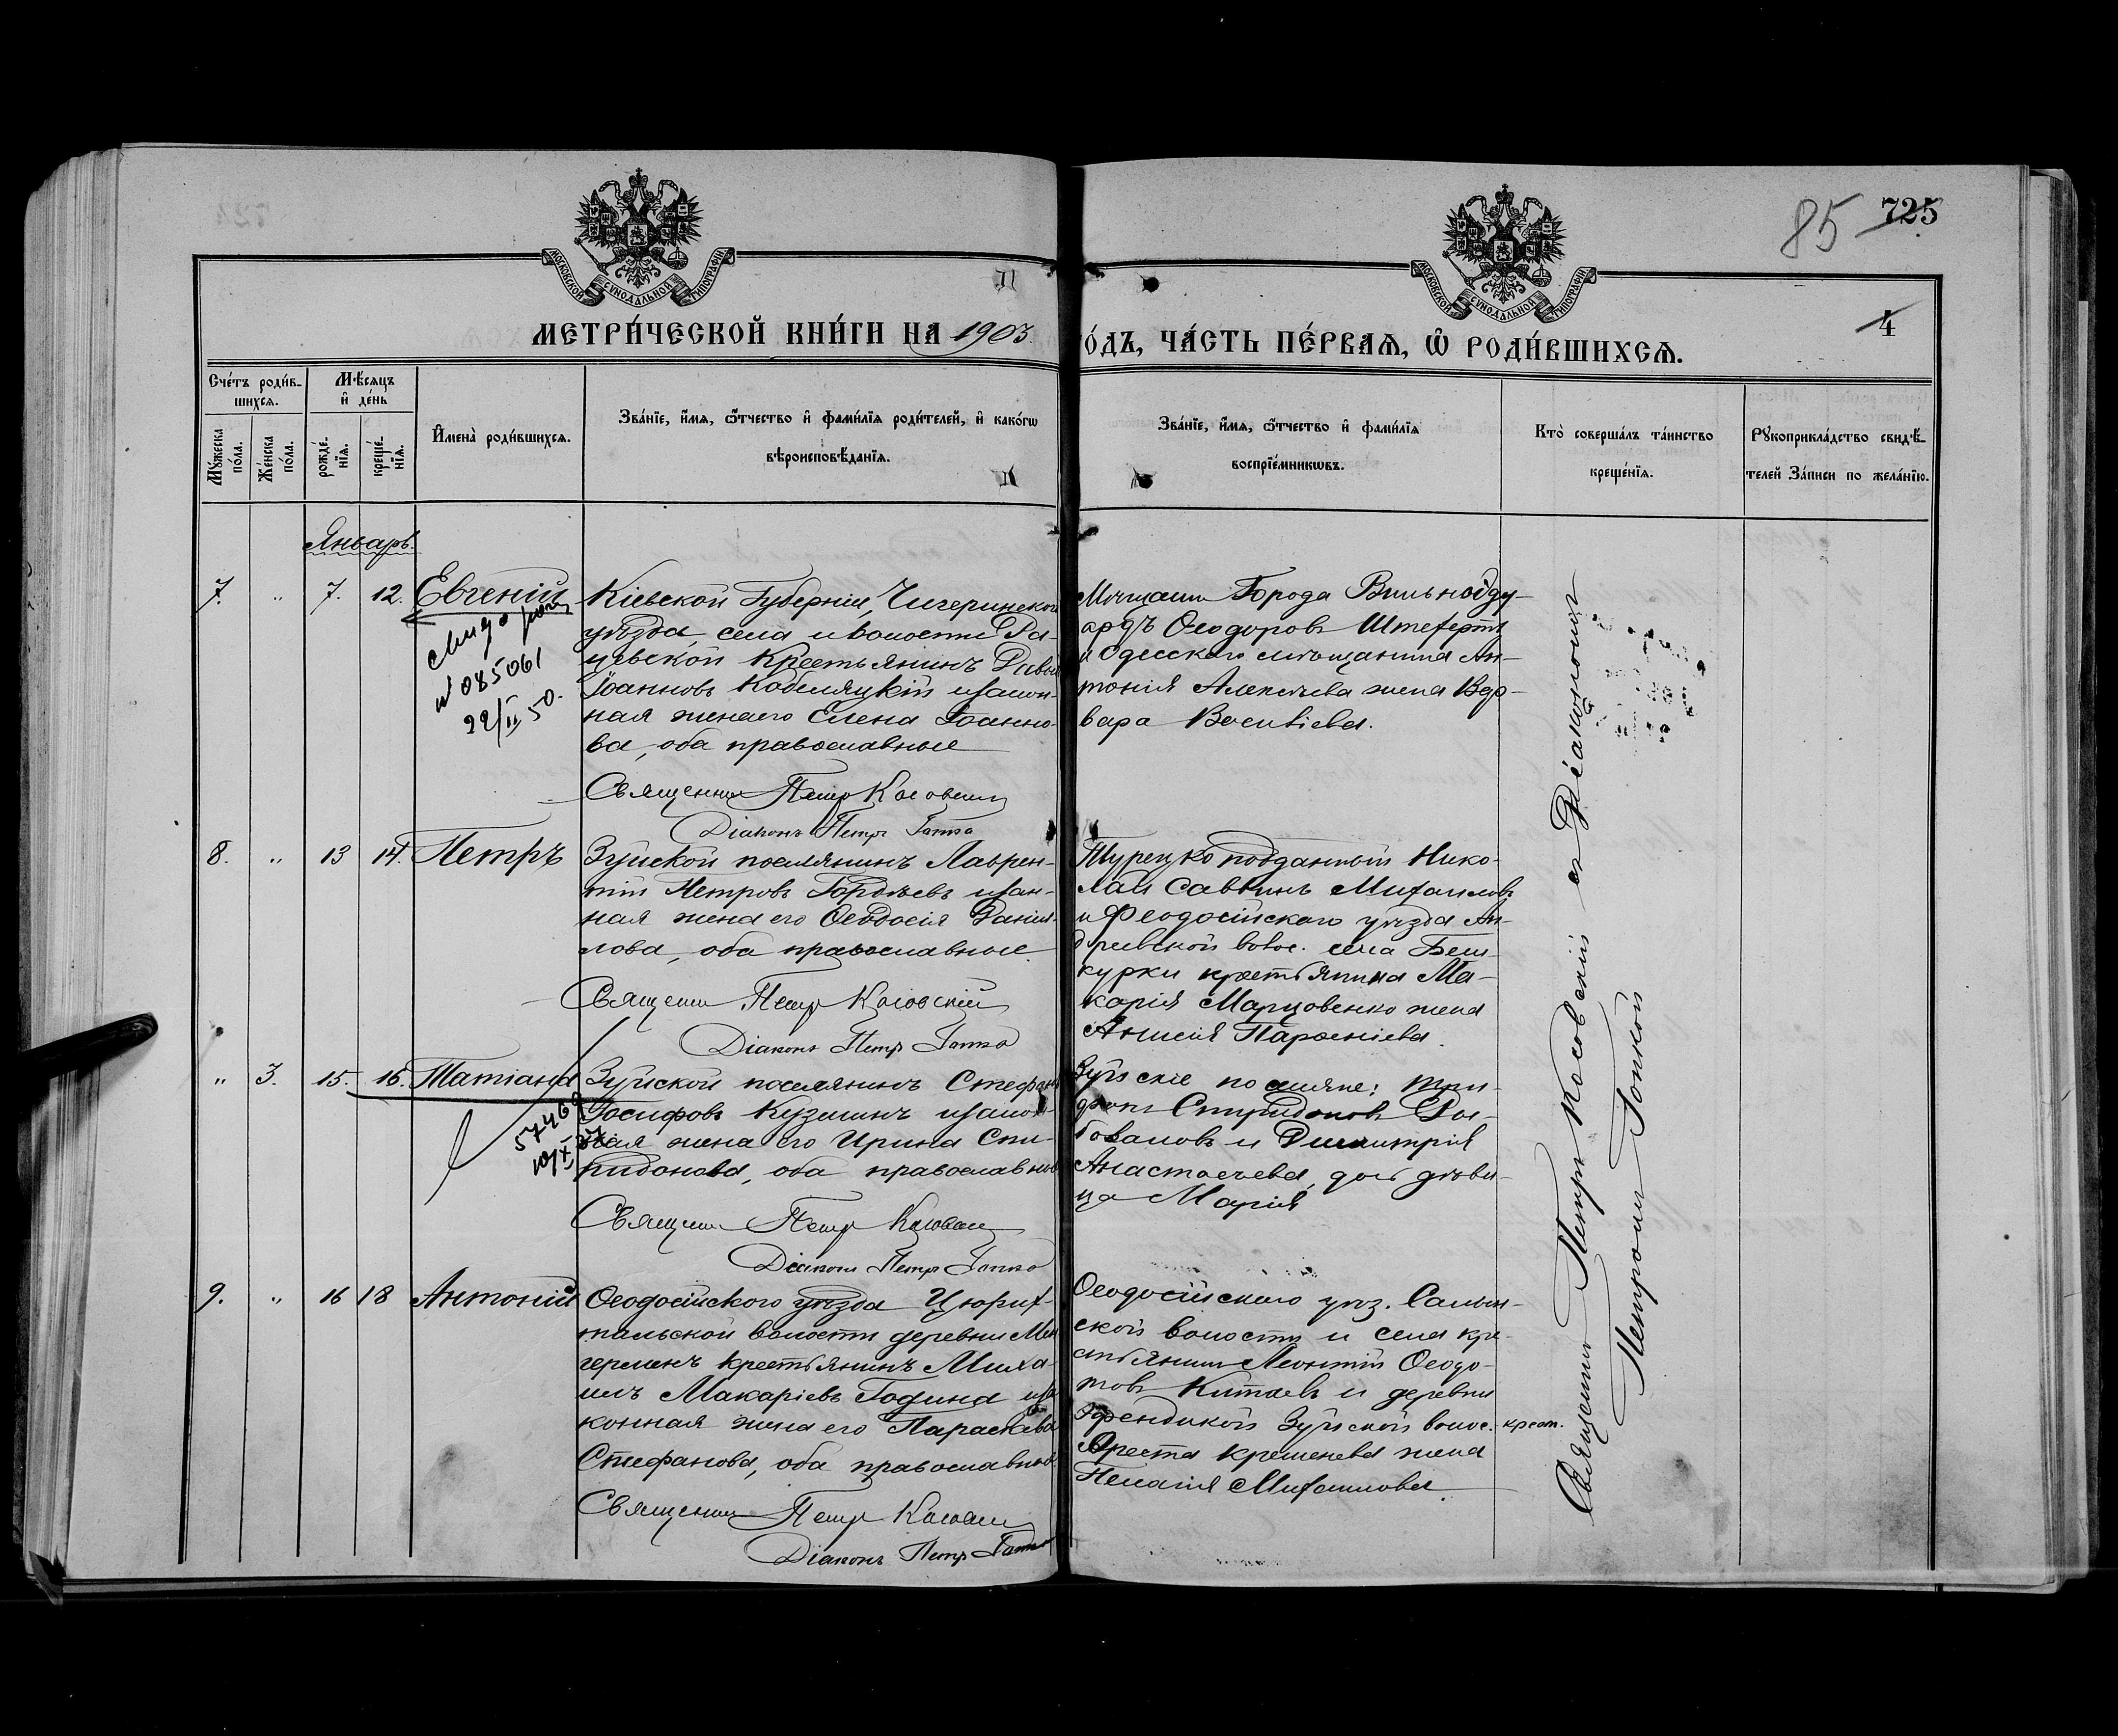 85 725
МОСКОВСКОЙ СѴНОДАЛЬНОЙ ТИПОГРАФІИ
МОСКОВСКОЙ СѴНОДАЛЬНОЙ ТИПОГРАФІИ
4
МЕТРИ́ЧЕСКОЙ КНИ́ГИ НА 1903
О́ДЪ, ЧА́СТЬ ПЕ́РВАѦ, Ѡ҆ РОДИ́ВШИХСѦ.
Сче́тъ роди́в-
шихсѧ.
Мѣ́сѧцъ
и҆ де́нь
Мꙋ́жеска
по́ла.
Же́нска
по́ла.
рожде́-
нїѧ.
креще́-
нїѧ.
И҆мена̀ роди́вшихсѧ.
Зва́нїе, и҆́мѧ, ѻ҆́тчество и҆ фами́лїѧ роди́телей, и҆ како́гѡ
вѣроисповѣ́данїѧ.
Зва́нїе, и҆́мѧ, ѻ҆́тчество и҆ фами́лїѧ
воспрїе́мникѡвъ.
Кто̀ соверша́лъ та́инство
креще́нїѧ.
Рꙋкоприкла́дство свидѣ́-
телей За́писи по жела́нїю.
Январь.
7. " 7. 12. Евгеній
№ 085061
22/II 50.
Кіевской Губерніи, Чигиринскаго
уѣзда, села и волости Ра-
цевской крестьянинъ Давидъ
Іоанновъ Кобеляцкій и закон-
ная жена его Елена Іоанно-
ва, оба православные
Священникъ Петръ Косовскій
Діаконъ Петръ
Мѣщани Города Вильно Эду-
ардъ Ѳеодоровъ
и Одесскаго мѣщанина Ан-
тонія Алексѣева жена Вар-
вара Васильева.
8. " 13 14. Петръ
Зуйской поселянинъ Лаврен-
тій Петровъ Гордѣевъ и закон-
ная жена его Ѳеодосія Даніи-
лова, оба православные
Священникъ Петръ Косовскій
Діаконъ Петръ
Турецко подданный Нико-
лай Саввинъ Михаиловъ
и Феодосійскаго уѣзда Ан-
дреевской волос. села Беш-
курки крестьянина Ма-
карія Марцовенко жена
Анисія Парѳеніева.
" 3. 15. 16. Татіана
57469
10/X 37
Зуйской поселянинъ Стефанъ
Іосифовъ Кузьминъ и закон-
ная жена его Ирина Спи-
ридонова, оба православные
Священникъ Петръ Косовскій
Діаконъ Петръ
Зуйскіе поселяне: Три-
фонъ Спиридоновъ
и Димитрія
Анастасьева, дочь дѣви-
ца Марія
9. " 16 18 Антоній
Ѳеодосійскаго уѣзда Цюрих-
тальской волости деревни
крестьянинъ Миха-
илъ Макаріевъ Година и за-
конная жена его Параскева
Стефанова, оба православные
Священникъ Петръ Косовскій
Діаконъ Петръ
Ѳеодосійскаго уѣз. Салын-
ской волости и села кре-
стьянинъ Леонтій Ѳеодо-
товъ Китаевъ и деревни
Зуйской волос. крест.
Ореста Крешенева жена
Пелагія Михаилова.
Священникъ Петръ Косовскій съ Діакономъ
Петромъ